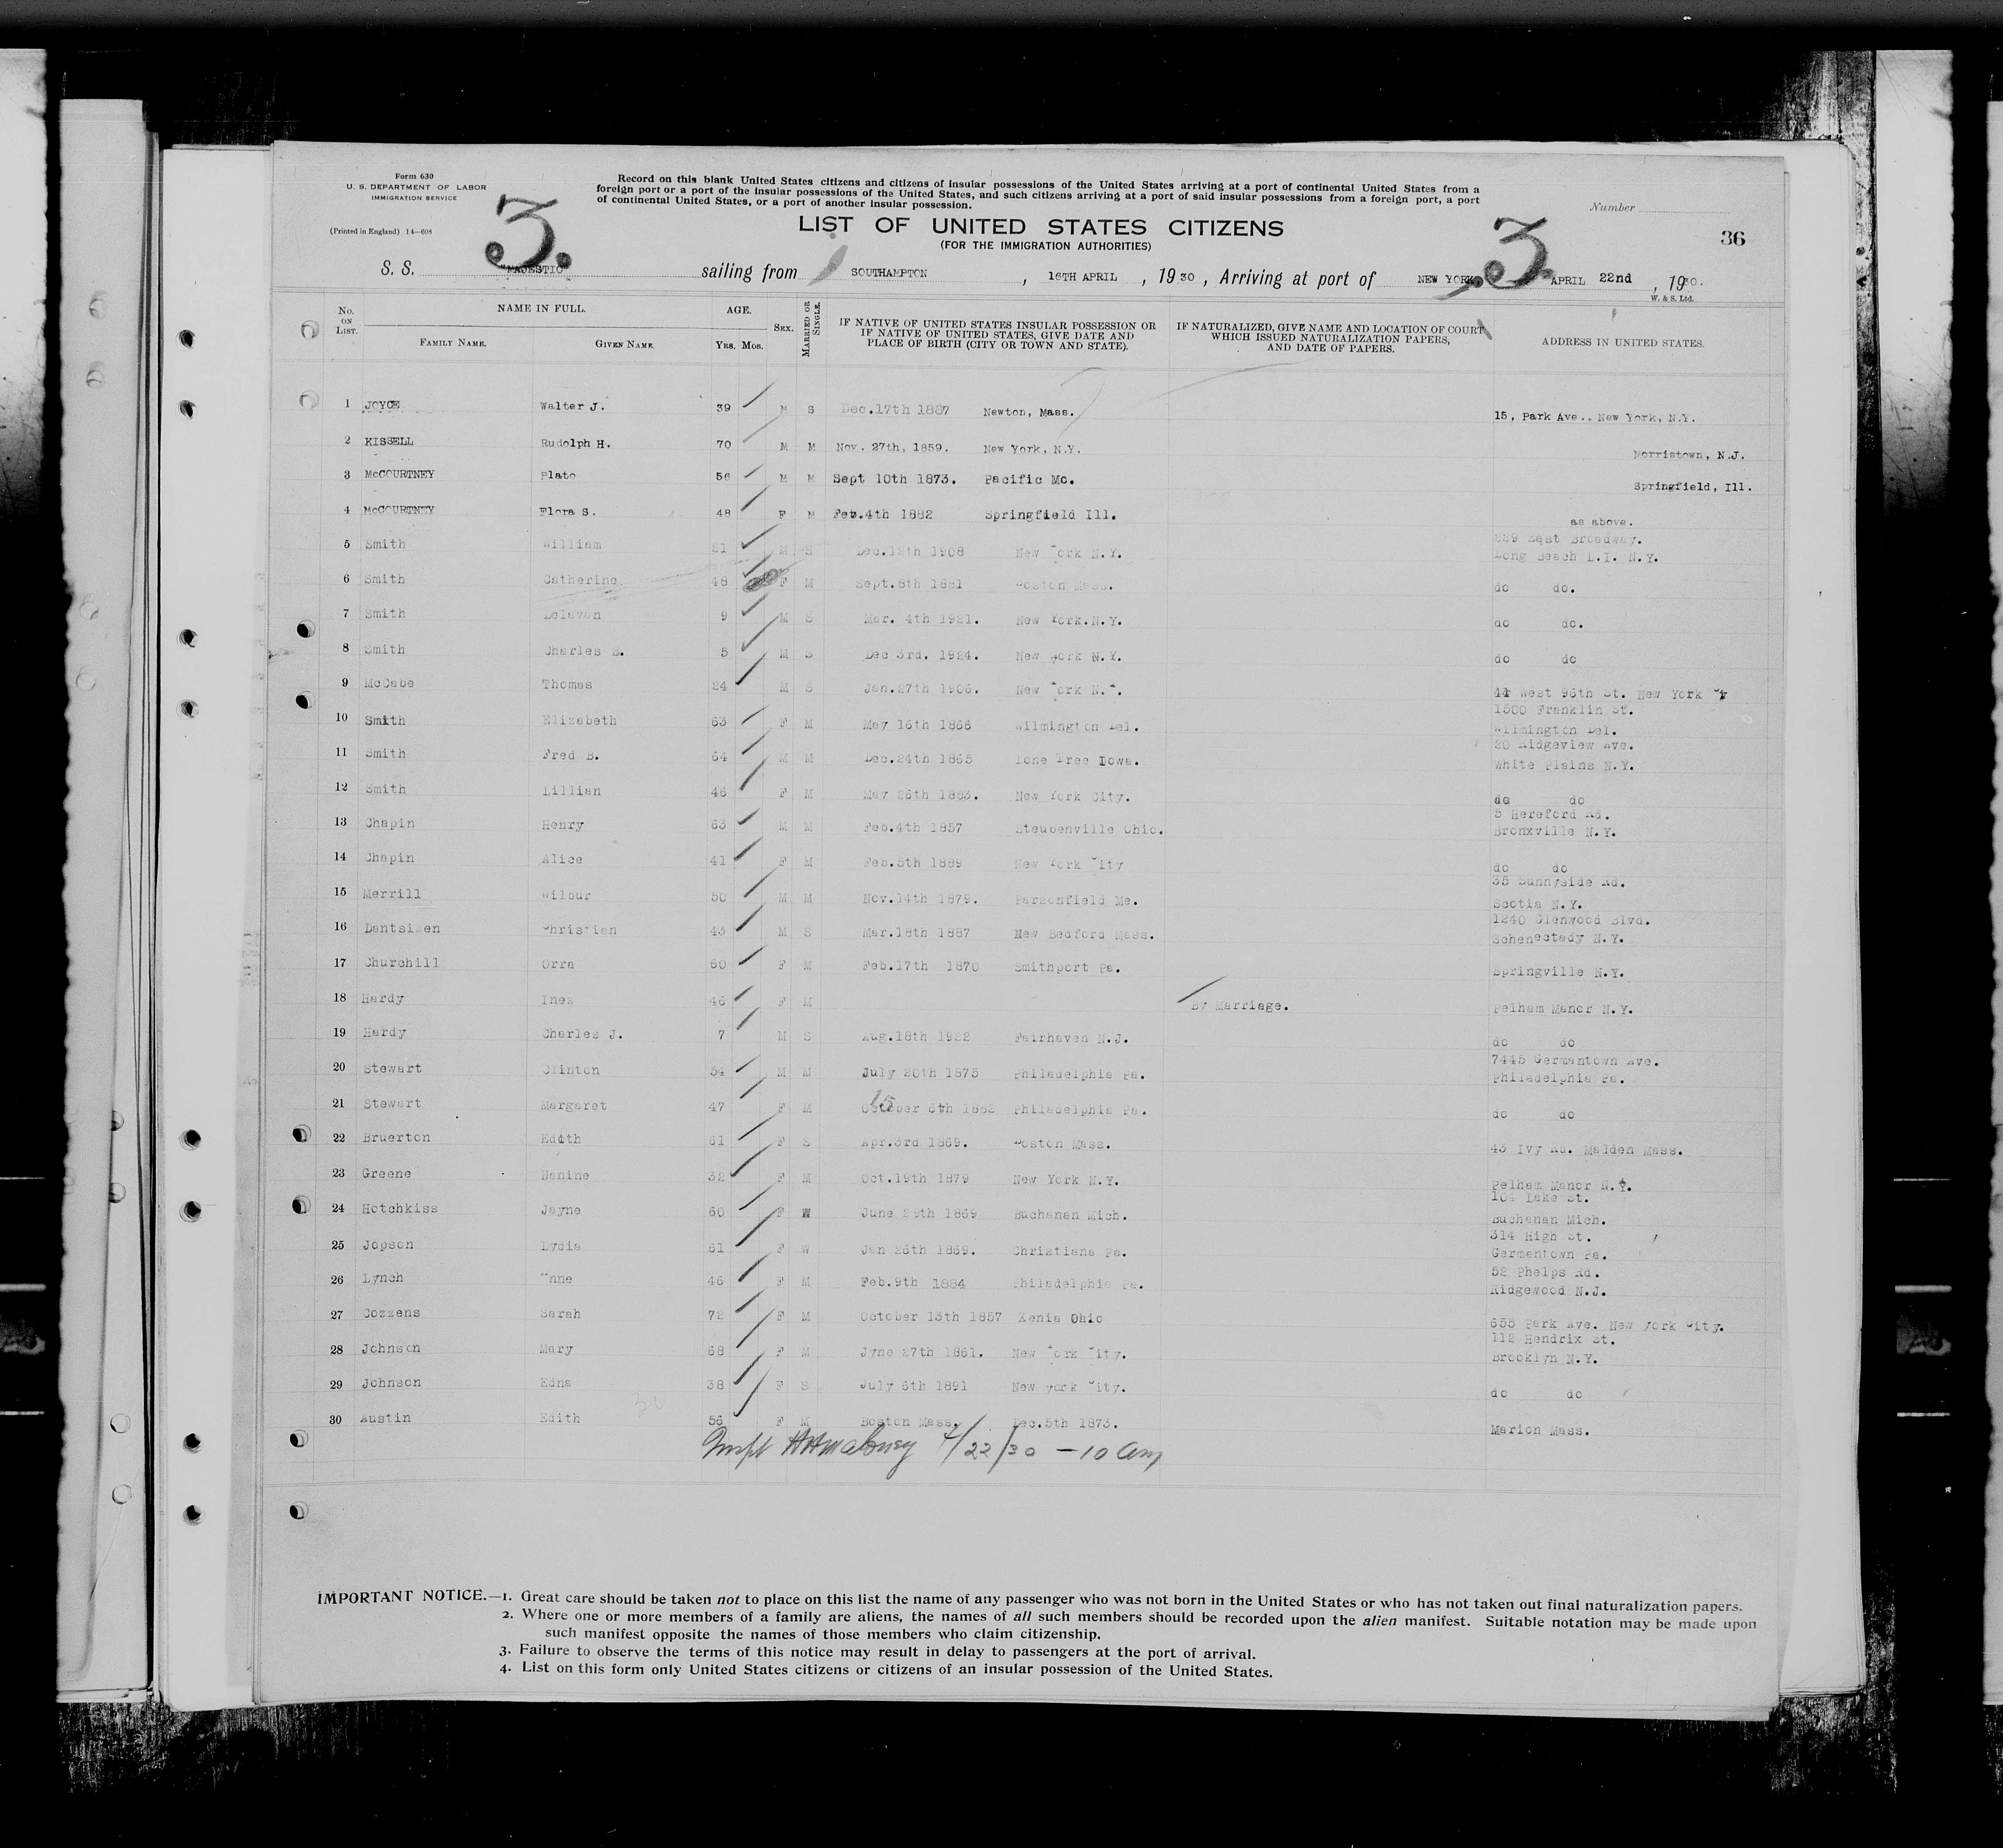 Form 630
U. S. DEPARTMENT OF LABOR
IMMIGRATION SERVICE
(Printed in England) 14—608
3.
Record on this blank United States citizens and citizens of insular possessions of the United States arriving at a port of continental United States from a
foreign port or a port of the insular possessions of the United States, and such citizens arriving at a port of said insular possessions from a foreign port, a port
of continental United States, or a port of another insular possession.
Number
LIST OF UNITED STATES CITIZENS
(FOR THE IMMIGRATION AUTHORITIES)
3.
36
S. S. "MAJESTIC" sailing from SOUTHAMPTON, 16TH APRIL, 1930, Arriving at port of NEW YORK, APRIL 22nd, 1930.
W. & S. Ltd.
No. ON LIST. NAME IN FULL. AGE. SEX. MARRIED OR SINGLE. IF NATIVE OF UNITED STATES INSULAR POSSESSION OR IF NATIVE OF UNITED STATES, GIVE DATE AND PLACE OF BIRTH (CITY OR TOWN AND STATE). IF NATURALIZED, GIVE NAME AND LOCATION OF COURT WHICH ISSUED NATURALIZATION PAPERS, AND DATE OF PAPERS. ADDRESS IN UNITED STATES.
FAMILY NAME. GIVEN NAME. YRS. MOS.
1 JOYCE Walter J. 39 M S Dec.17th 1887 Newton, Mass. 15, Park Ave., New York, N.Y.
2 KISSELL Rudolph H. 70 M M Nov. 27th, 1859. New York, N.Y. Morristown, N.J.
3 McCOURTNEY Plato 56 M M Sept 10th 1873. Pacific Mo. Springfield, Ill.
4 McCOURTNEY Flora S. 48 F M Feb.4th 1882 Springfield Ill. as above.
5 Smith William 21 M S Dec.12th 1908 New York N.Y. 229 East Broadway.
Long Beach L.I. N.Y.
6 Smith Catherine 48 F M Sept.8th 1881 Boston Mass. do do.
7 Smith Delavan 9 M S Mar. 4th 1921. New York.N.Y. do do.
8 Smith Charles B. 5 M S Dec 3rd. 1924. New york N.Y. do do
9 McCabe Thomas 24 M S Jan.27th 1906. New York N.Y. 44 West 96th St. New York
10 Smith Elizabeth 63 F M May 16th 1866 Wilmington Del. 1500 Franklin St.
Wilmington Del.
11 Smith Fred B. 64 M M Dec.24th 1865 Lone Tree Iowa. 20 Ridgeview Ave.
White Plains N.Y.
12 Smith Lillian 46 F M May 26th 1883. New York City. do do
13 Chapin Henry 63 M M Feb.4th 1857 Steubenville Ohio. 5 Hereford Rd.
Bronxville N.Y.
14 Chapin Alice 41 F M Feb.5th 1889 New York City do do
15 Merrill Wilbur 50 M M Nov.14th 1879. Parsonfield Me. 35 Sunnyside Rd.
Scotia N.Y.
16 Christian 43 M S Mar.18th 1887 New Bedford Mass. 1240 Glenwood Blvd.
Schenectady N.Y.
17 Churchill Orra 60 F M Feb.17th 1870 Smithport Pa. Springville N.Y.
18 Hardy Inez 46 F M By Marriage. Pelham Manor N.Y.
19 Hardy Charles J. 7 M S Aug.18th 1922 Fairhaven N.J. do do
20 Stewart Clinton 54 M M July 20th 1875 Philadelphia Pa. 7445 Germantown Ave.
Philadelphia Pa.
21 Stewart Margaret 47 F M October 6th 1882 Philadelphia Pa. do do
22 Bruerton Edith 61 F S Apr.3rd 1869. Boston Mass. 43 Ivy Rd. Malden Mass.
23 Greene Nanine 32 F M Oct.19th 1879 New York N.Y. Pelham Manor N.Y.
24 Hotchkiss Jayne 60 F W June 29th 1869 Buchanan Mich. 104 Lake St.
Buchanan Mich.
25 Jopson Lydia 61 F W Jan 26th 1869. Christiana Pa. 314 High St.
Germantown Pa.
26 Lynch Anne 46 F M Feb.9th 1884 Philadelphia Pa. 52 Phelps Rd.
Ridgewood N.J.
27 Cozzens Sarah 72 F M October 13th 1857 Xenia Ohio 655 Park Ave. New York City.
28 Johnson Mary 68 F M Jyne 27th 1861. New York City. 112 Hendrix St.
Brooklyn N.Y.
29 Johnson Edna 38 F S July 6th 1891 New york City. do do
30 Austin Edith 56 F M Boston Mass. Dec.5th 1873. Marion Mass.
4/22/30 — 10 am
IMPORTANT NOTICE.—1. Great care should be taken not to place on this list the name of any passenger who was not born in the United States or who has not taken out final naturalization papers.
2. Where one or more members of a family are aliens, the names of all such members should be recorded upon the alien manifest. Suitable notation may be made upon
such manifest opposite the names of those members who claim citizenship.
3. Failure to observe the terms of this notice may result in delay to passengers at the port of arrival.
4. List on this form only United States citizens or citizens of an insular possession of the United States.